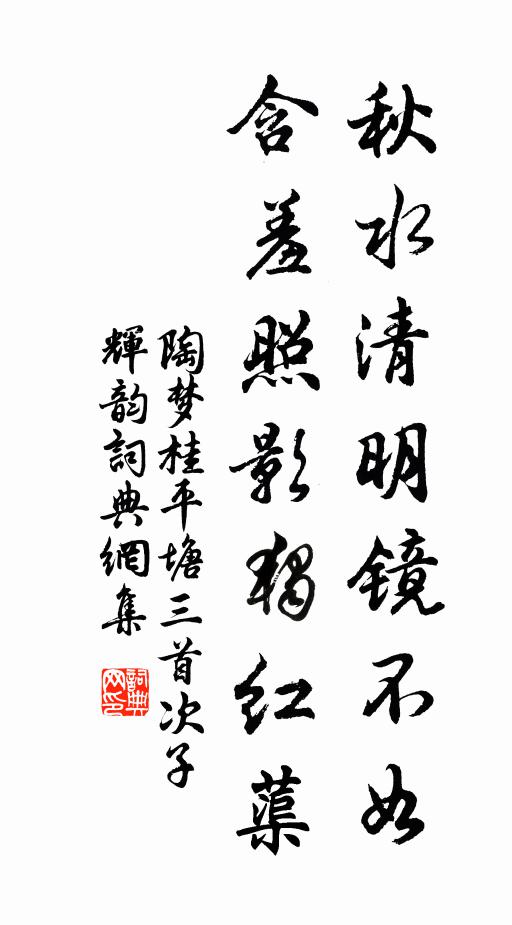 秋水清明镜不如
含羞照影独红蕖
陶梦桂平塘三首次子
輝韵詞典網集
詞典
网印